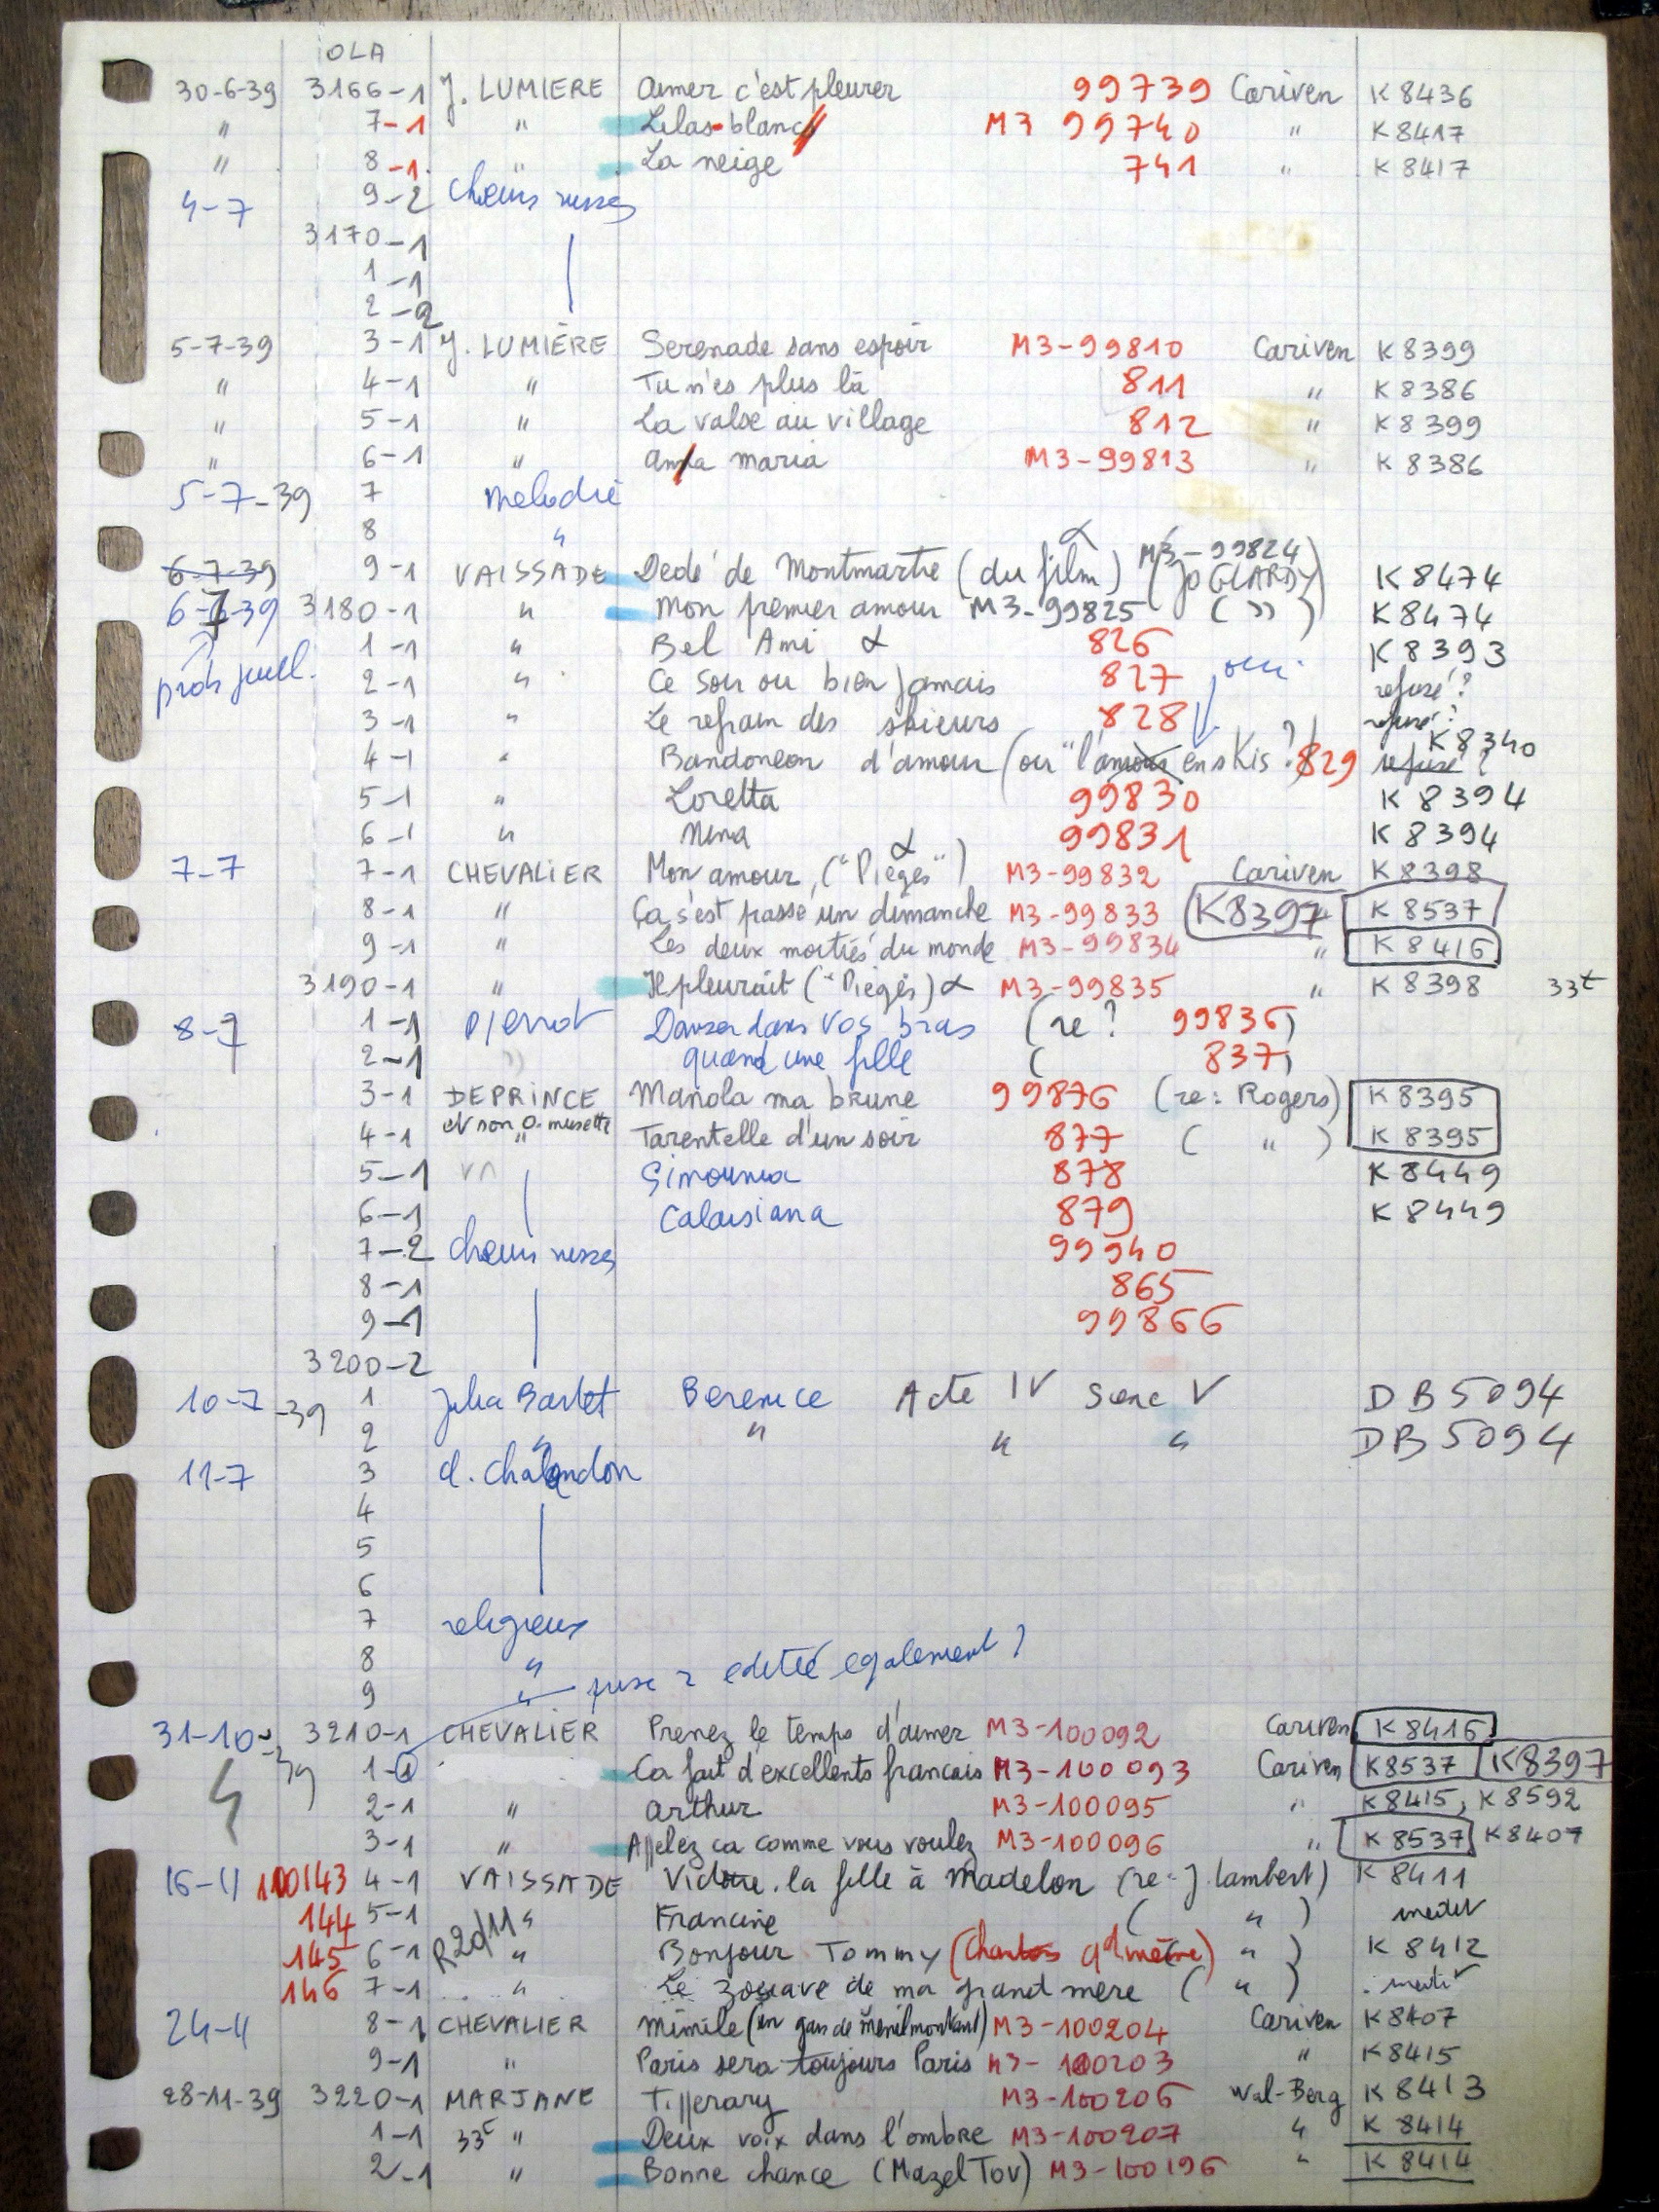 OLA
30-6-39 3166-1 J. LUMIERE Aimer c'est pleurer 99739 Cariven K 8436
" 7-1 " Lilas-blanc M3 99740 " K 8417
" 8-1 " La neige 741 " K 8417
4-7 9-2 choeurs russes
3170-1
1-1
2-2
5-7-39 3-1 J. LUMIÈRE Serenade sans espoir M3-99810 Cariven K 8399
" 4-1 " Tu n'es plus là 811 " K 8386
" 5-1 " La valse au village 812 " K 8399
" 6-1 " Anna maria M3-99813 " K 8386
5-7-39 7 melodie
8 "
6-7-39 9-1 VAISSADE Dedé de Montmartre (du film) α M3-99824 (Jo GLARDY) K 8474
6-7-39 3180-1 " Mon premier amour M3-99825 ( " ) K 8474
1-1 " Bel Ami α 826 K 8393
prob juill. 2-1 " Ce soir ou bien jamais 827 oui refusé?
3-1 " Le refrain des skieurs 828 refusé?
4-1 " Bandoneon d'amour (ou "l'amour en skis"?) 829 refusé? K 8340
5-1 " Loretta 99830 K 8394
6-1 " Nina 99831 K 8394
7-7 7-1 CHEVALIER Mon amour, ("Pièges") α M3-99832 Cariven K 8398
8-1 " Ça s'est passé un dimanche M3-99833 K8397 " K 8537
9-1 " Les deux moitiés du monde M3-99834 " K 8416
3190-1 " Il pleurait ("Pièges) α M3-99835 " K 8398 33t
8-7 1-1 Pierrot Danser dans vos bras (re? 99836)
2-1 " quand une fille ( 837)
3-1 DEPRINCE Manola ma brune 99876 (re: Rogers) K 8395
et son O. musette
4-1 " Tarentelle d'un soir 877 ( " ) K 8395
5-1 Simounia 878 K 8449
6-1 Calaisiana 879 K 8449
7-2 choeurs russes 99940
8-1 865
9-1 99866
3200-2
10-7-39 1 Julia Bartet Berenice Acte IV Scene V DB 5094
2 " " " " DB 5094
11-7 3 d. Chalandon
4
5
6
7 religieux
8 "
9 " prise 2 editée egalement?
31-10-39 3210-1 CHEVALIER Prenez le temps d'aimer M3-100092 Cariven K 8416
1-1 Ca fait d'excellents francais M3-100093 Cariven K8537 K8397
2-1 " Arthur M3-100095 " K 8415, K 8592
3-1 " Appelez ca comme vous voulez M3-100096 " K 8537 K8407
16-11 100143 4-1 VAISSADE Victoire. la fille à Madelon (re: J. Lambert) K 8411
144 5-1 " Francine ( " ) inedit
145 6-1 R2d11 " Bonjour Tommy (Charlos qd même) " ) K 8412
146 7-1 " Le zouave de ma grand mere ( " ) inedit
24-11 8-1 CHEVALIER Mimile (un gars de Menilmontant) M3-100204 Cariven K 8407
9-1 " Paris sera toujours Paris M3-100203 " K8415
28-11-39 3220-1 MARJANE Tipperary M3-100206 Wal-Berg K 8413
1-1 33t " Deux voix dans l'ombre M3-100207 " K 8414
2-1 " Bonne chance (Mazel Tov) M3-100196 " K 8414